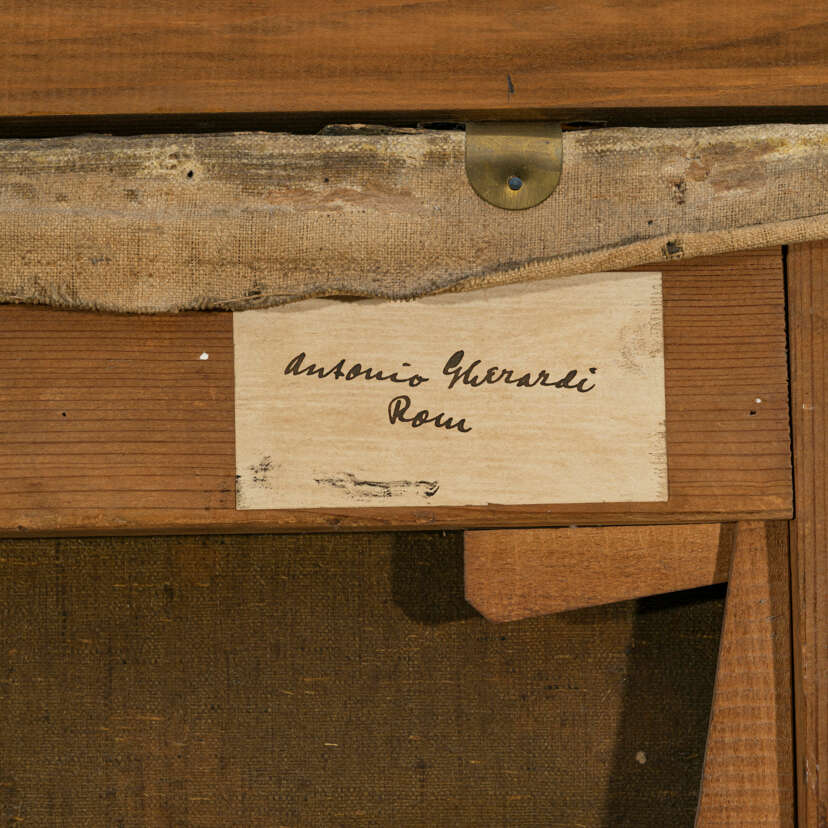 Antonio Gherardi
Rom